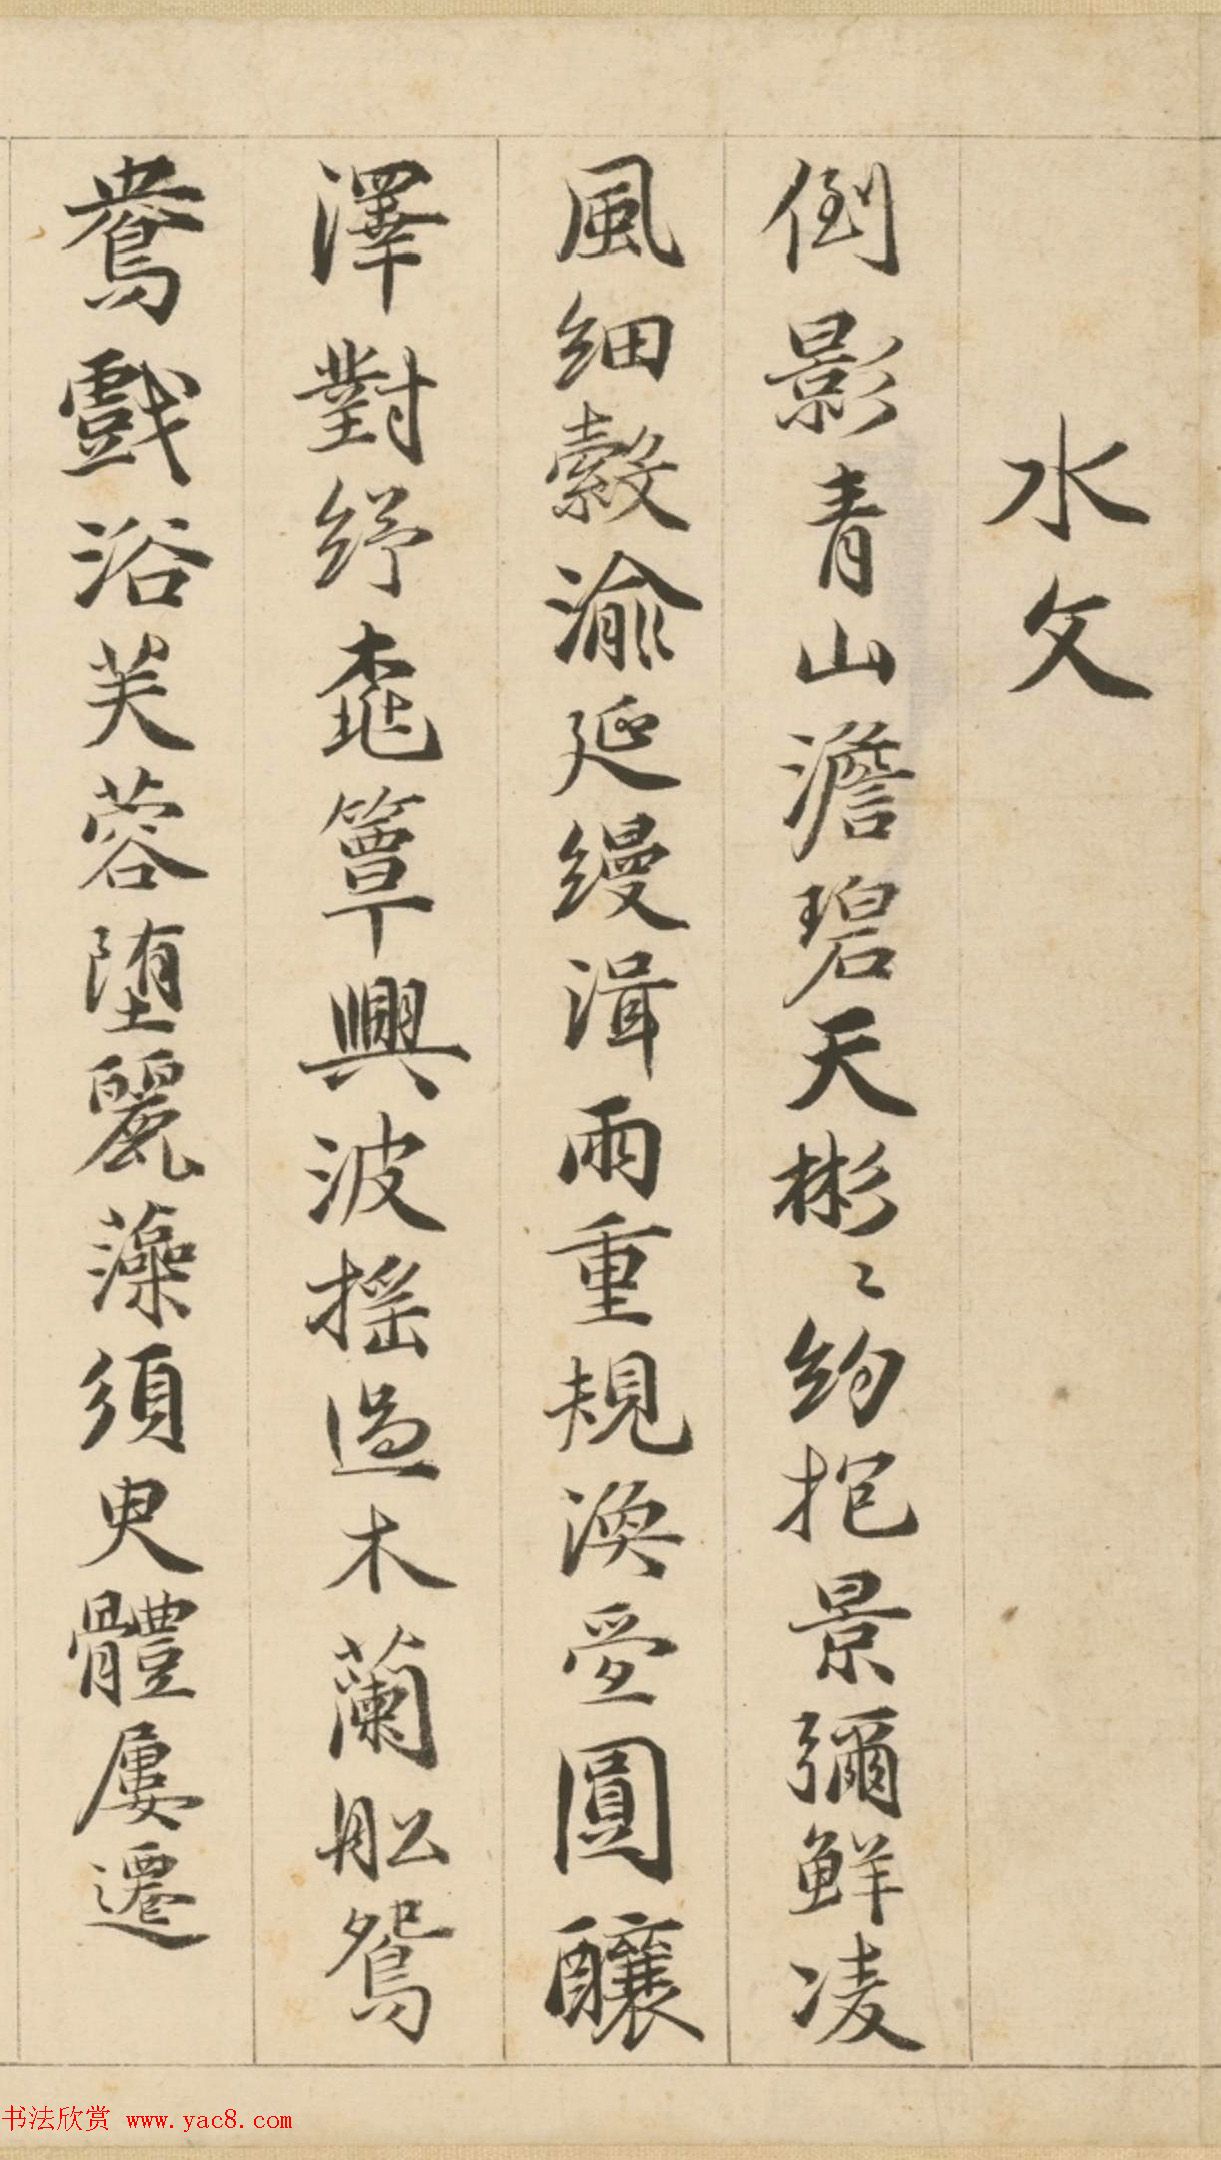 水文
倒影青山澹碧天彬〻約抱景彌鮮凌
風細縠渝延縵湒雨重規渙受圓釀
澤對紓簟興波搖過木蘭舩鴛
鴦戲浴芙蓉堕麗藻須臾體屢遷
书法欣赏 www.yac8.com